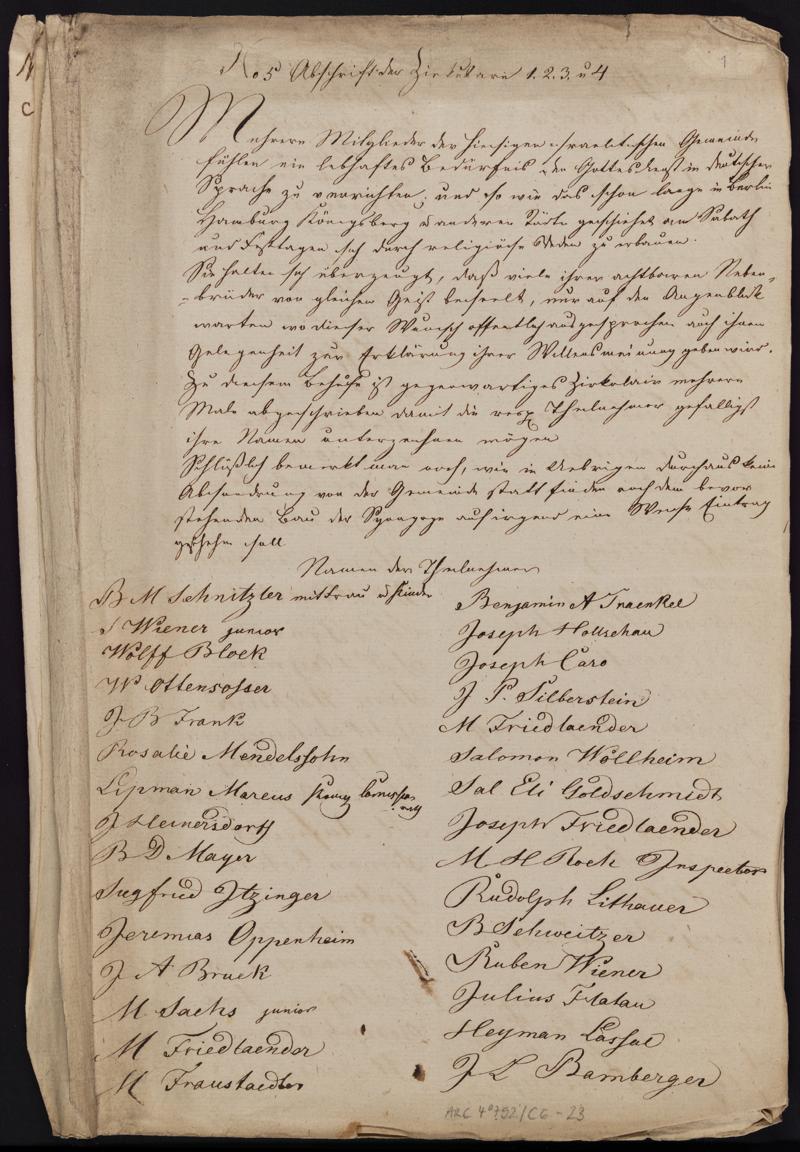 1
No 5 Abschrift der Zirkulare 1. 2. 3. u 4
Mehrere Mitglieder der hiesigen israelitischen Gemeinde
fühlen ein lebhaftes Bedürfnis den Gottesdienst in deutscher
Sprache zu verrichten, und so wie das schon lange in Berlin
Hamburg Königsberg u anderen geschiehet am Sabath
und Festtagen sich durch religiöse Reden zu erbauen.
Sie halten sich überzeugt, daß viele ihrer achtbaren Neben-
brüder von gleichen Geist beseelt, nur auf den Augenblick
warten wo dieser Wunsch öffentlich ausgesprochen auch ihnen
Gelegenheit zur Erklärung ihrer Willensmeinung geben wird.
Zu diesem Behufe ist gegenwärtiges Zirkulair mehrere
Male abgeschrieben damit die resp Theilnehmer gefälligst
ihre Namen unterzeichnen mögen
Schlüßlich bemerkt man noch, wie in Uebrigen durchaus keine
Absonderung von der Gemeinde statt finden noch dem bevor
stehenden Bau der Synagoge auf irgend eine Weise Eintrag
geschehn soll
Namen der Theilnehmer
B M Schnitzler mit Frau u Kinder
S Wiener junior
Wolff Block
W Ottensosser
J B Frank
Rosalie Mendelssohn
Lipman Marcus
J Heinersdorff
B D Mayer
Siegfried Itzinger
Jeremias Oppenheim
J A Bruck
M Sachs junior
M Friedlaender
M Fraustaedter
Benjamin A Fraenkel
Joseph Hollschau
Joseph Caro
J P. Silberstein
M Friedlaender
Salomon Wollheim
Sal Eli Goldschmidt
Joseph Friedlaender
M H Bock Inspector
Rudolph Lithauer
B Schweitzer
Ruben Wiener
Julius Flatau
Heyman Lassal
J L Bamberger
ARC 4° 792/C6-23